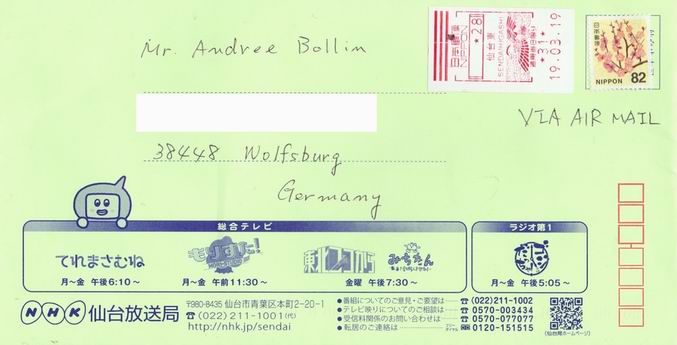 Mr. Andree Bollin
日本郵便
NIPPON
*28
仙台東
SENDAIHIGASHI
*31*
19.03.19
日本郵便
NIPPON 82
VIA AIR MAIL
38448 Wolfsburg
Germany
総合テレビ
ラジオ第1
てれまさむね
もりすた!
みちたん
月～金 午後6:10～
月～金 午前11:30～
金曜 午後7:30～
月～金 午後5:05～
NHK 仙台放送局
〒980-8435 仙台市青葉区本町2-20-1
☎(022)211-1001(代)
http://nhk.jp/sendai
●番組についてのご意見・ご要望は ☎(022)211-1002
●テレビ映りについてのご相談は ☎0570-003434
●受信料関係のお問い合わせは ☎0570-077077
●転居のご連絡は 0120-151515
(仙台局ホームページ)